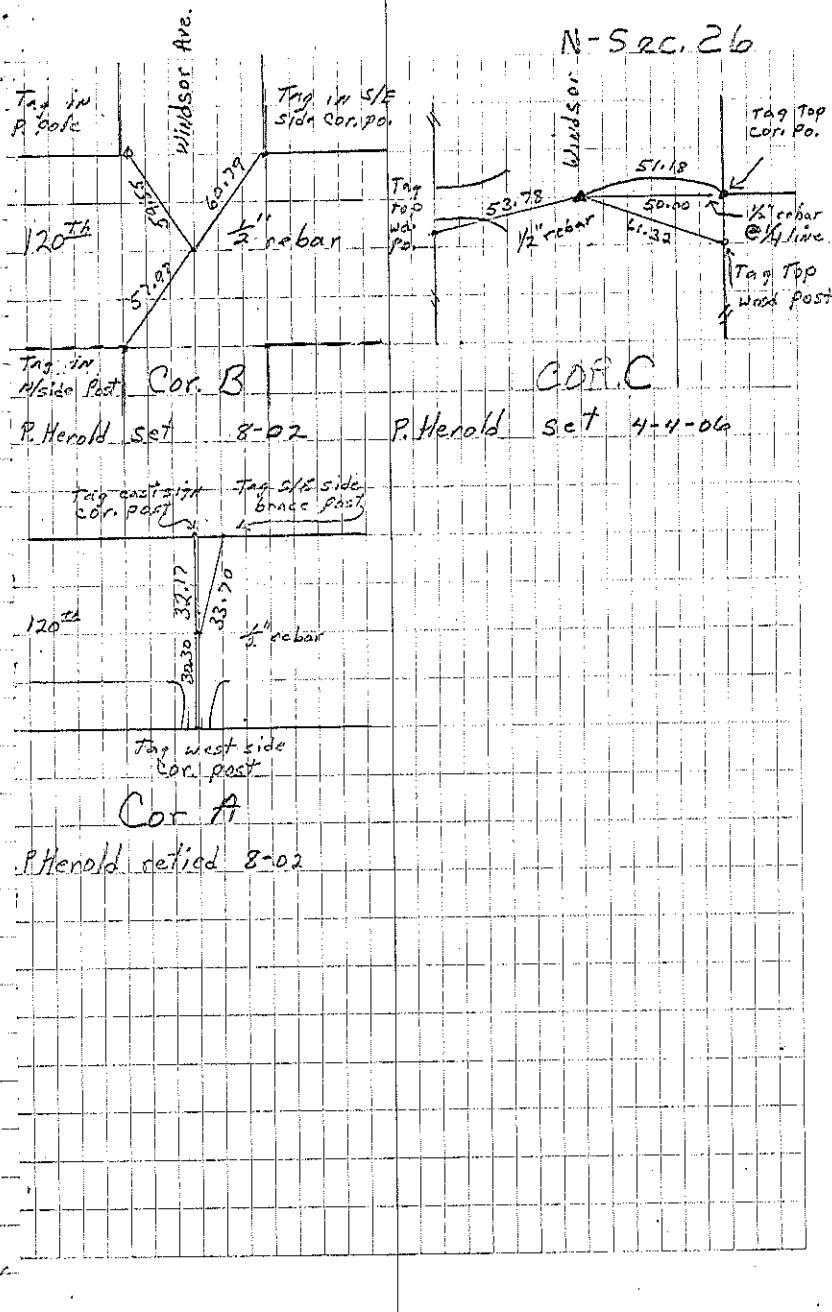 N-Sec. 26
Windsor Ave.
Tag in
P. pole
Tag in S/E
side cor. po.
60.79
120th
1/2" rebar
57.93
Tag in
N/side Post
Cor. B
P. Herold set 8-02
Windsor
Tag Top
cor. po.
51.18
Tag
top
wd.
po.
53.78
50.00
1/2" rebar
@ 1/4 line.
1/2" rebar
61.32
Tag Top
wood post
COR. C
P. Herold set 4-4-06
Tag east sign
cor. post
Tag S/E side
brace post
32.17
33.70
120th
1/2" rebar
30.30
Tag west side
cor. post
Cor A
P. Herold retied 8-02